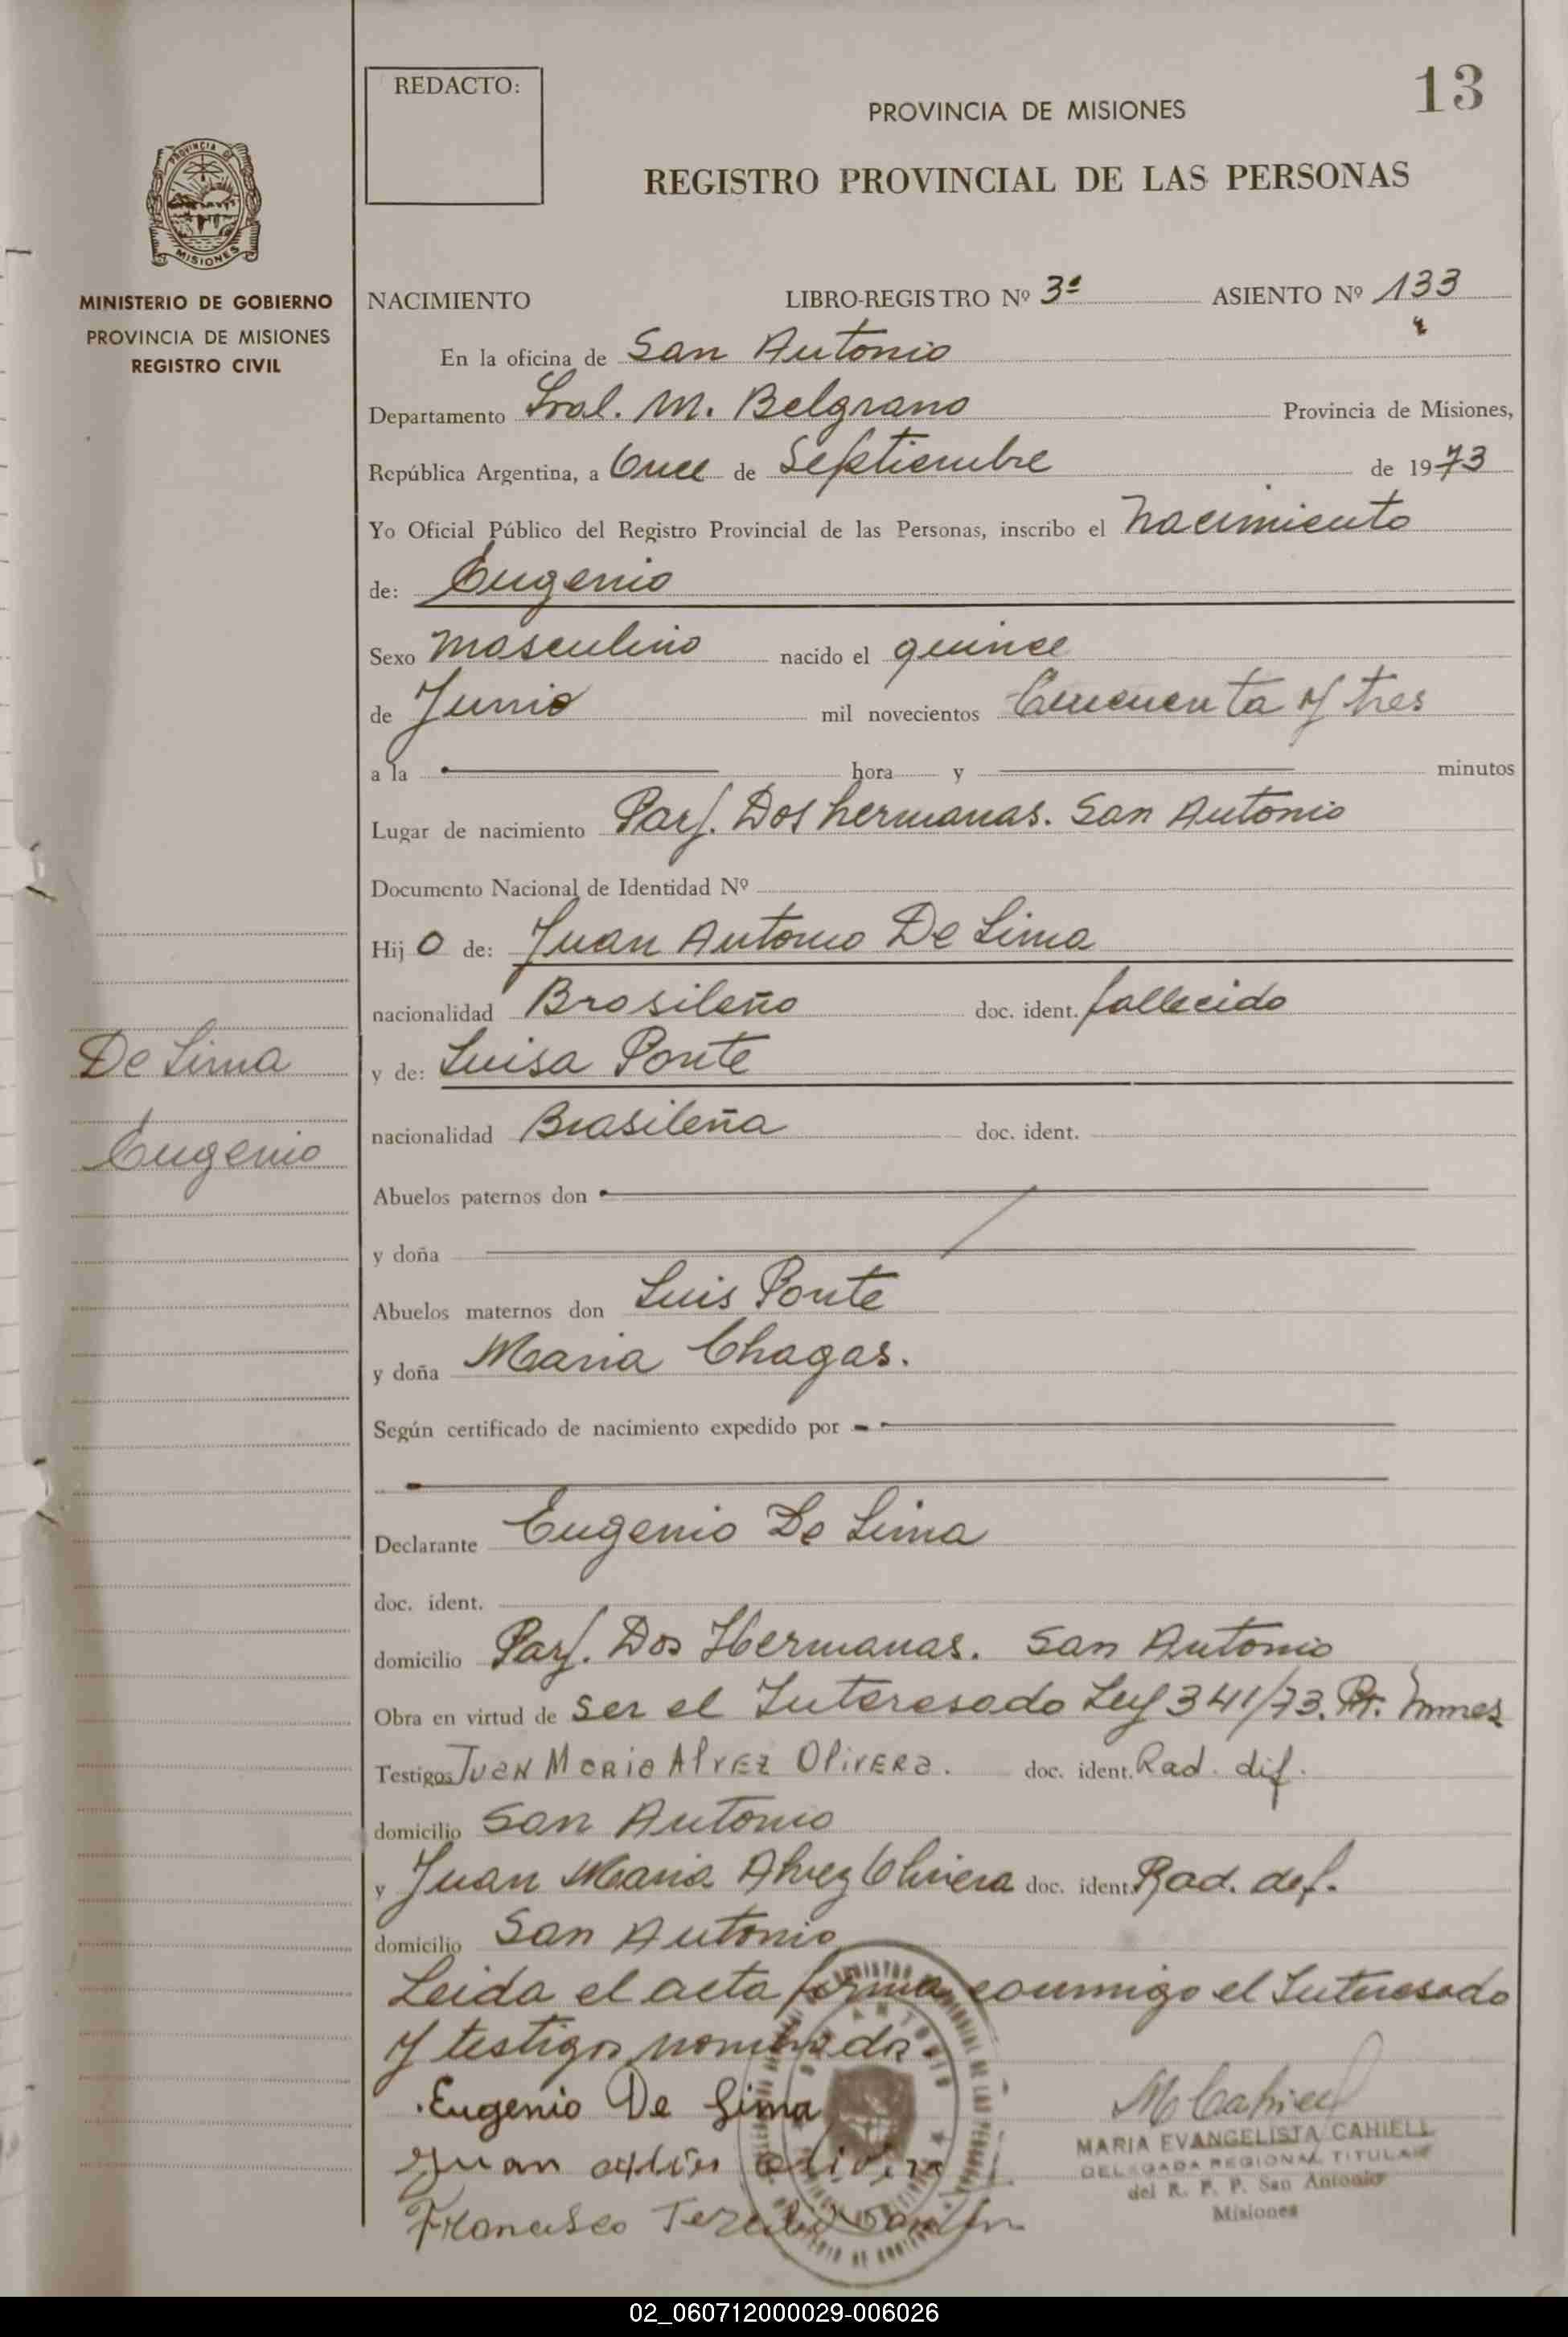 REDACTO:
13
PROVINCIA DE MISIONES
REGISTRO PROVINCIAL DE LAS PERSONAS
PROVINCIA DE
MISIONES
MINISTERIO DE GOBIERNO
PROVINCIA DE MISIONES
REGISTRO CIVIL
NACIMIENTO LIBRO-REGISTRO Nº 3º ASIENTO Nº 133
En la oficina de San Antonio
Departamento Gral. M. Belgrano Provincia de Misiones,
República Argentina, a Once de Septiembre de 1973
Yo Oficial Público del Registro Provincial de las Personas, inscribo el Nacimiento
de: Eugenio
Sexo Masculino nacido el quince
de Junio mil novecientos Cincuenta y tres
a la hora y minutos
Lugar de nacimiento Parj. Dos hermanas. San Antonio
Documento Nacional de Identidad Nº
Hijo de: Juan Antonio De Lima
nacionalidad Brasileño doc. ident. fallecido
y de: Luisa Ponte
nacionalidad Brasileña doc. ident.
De Lima
Eugenio
Abuelos paternos don
y doña
Abuelos maternos don Luis Ponte
y doña Maria Chagas.
Según certificado de nacimiento expedido por
Declarante Eugenio De Lima
doc. ident.
domicilio Parj. Dos Hermanas. San Antonio
Obra en virtud de Ser el Interesado Ley 341/73.
Testigos Juan Mario Alvez Olivera. doc. ident. Rad. dif.
domicilio San Antonio
y Juan Maria Alvez Olivera doc. ident. Rad. def.
domicilio San Antonio
Leida el acta firma conmigo el Interesado
y testigos nombrado.
Eugenio De Lima
Juan Olivera
Francisco
M Cahiell
MARIA EVANGELISTA CAHIELL
DELEGADA REGIONAL TITULAR
del R. P. P. San Antonio
Misiones
02_060712000029-006026